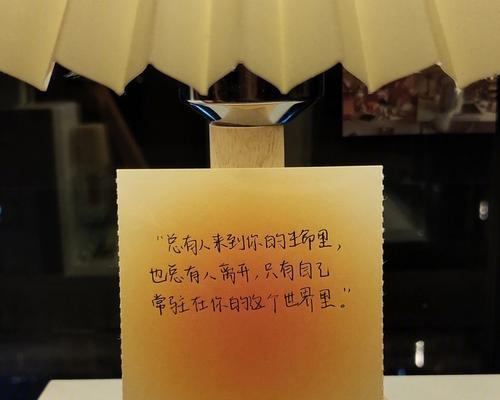 “总有人来到你的生命里，
也总有人离开，只有自己
常驻在你的这个世界里。”